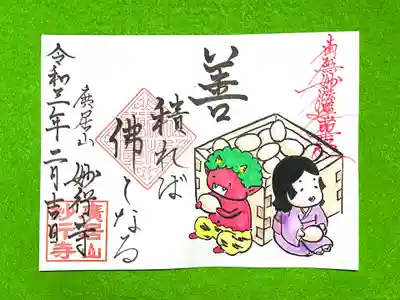 南無妙法蓮華経
善
積れば
佛となる
廣居山 妙行寺
令和三年二月吉日
廣居山
妙行寺